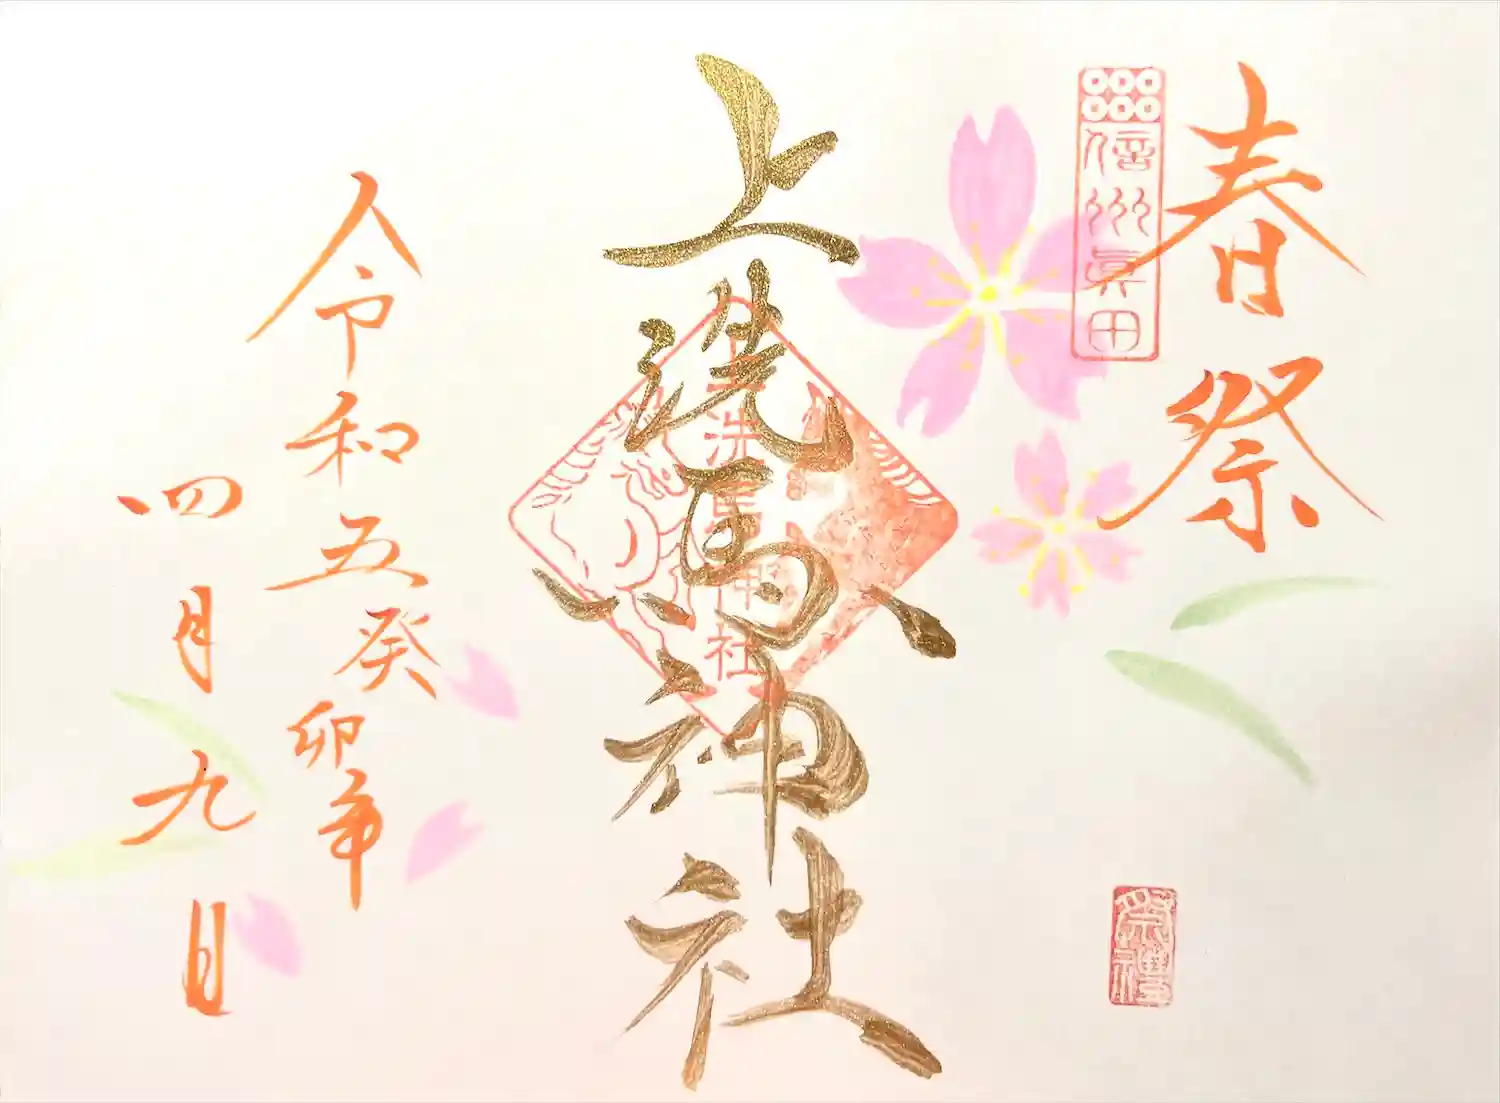 春祭
信州眞田
上洗馬神社
上洗馬神社
令和五癸卯年
四月九日